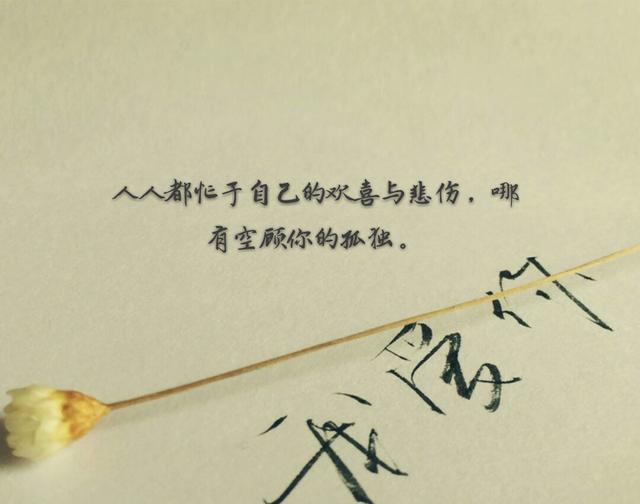 人人都忙于自己的欢喜与悲伤，哪
有空顾你的孤独。